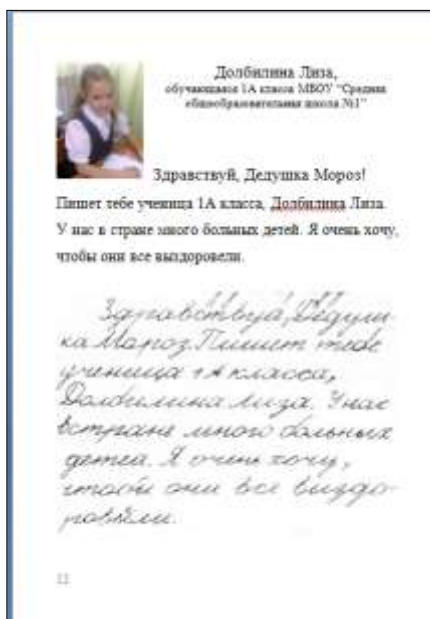 Долбилина Лиза,
обучающаяся 1А класса МБОУ "Средняя
общеобразовательная школа №1"
Здравствуй, Дедушка Мороз!
Пишет тебе ученица 1А класса, Долбилина Лиза.
У нас в стране много больных детей. Я очень хочу,
чтобы они все выздоровели.
Здравствуй, Дедуш-
ка Мороз. Пишет тебе
ученица 1А класса,
Долбилина Лиза. У нас
в стране много больных
детей. Я очень хочу,
чтобы они все выздо-
ровели.